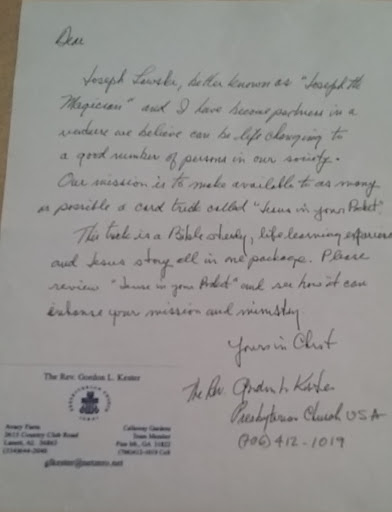 Dear
Joseph Lawske, better known as "Joseph the
Magician" and I have become partners in a
venture we believe can be life changing to
a good number of persons in our society.
Our mission is to make available to as many
as possible a card trick called "Jesus in your Pocket"
This trick is a Bible study, life learning experience
and Jesus story all in one package. Please
review "Jesus in your Pocket" and see how it can
enhance your mission and ministry
Yours in Christ
The Rev. Gordon L. Kester
Presbyterian Church USA
(706) 412-1019
The Rev. Gordon L. Kester
Avary Farm
3615 Country Club Road
Lanett, AL 36863
Callaway Gardens
Team Member
Pine Mt., GA 31822
(706)412-1019 Cell
glkester@netzero.net